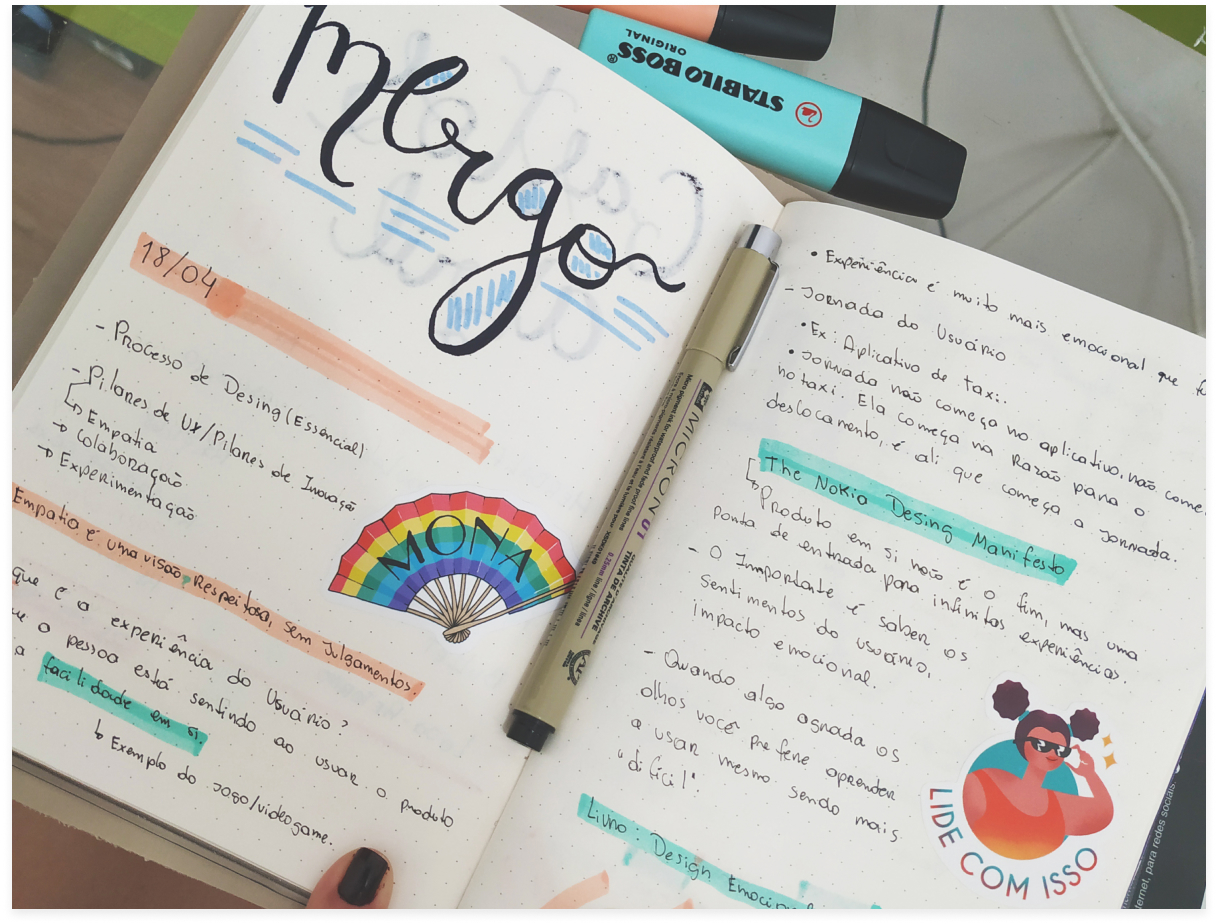 Mergo
18/04
- Processo de Desing (Essencial)
- Pilares de UX/Pilares de Inovação
↳ Empatia
→ Colaboração
→ Experimentação
Empatia é uma visão Respeitosa, Sem Julgamentos.
que é a experiência do Usuário?
o pessoa está sentindo ao usuar o produto
a facilidade em si.
↳ Exemplo do jogo/videogame.
MONA
STABILO BOSS®
ORIGINAL
MICRON 01
TINTA DE ARCHIVE
• Experiência é muito mais emocional que
- Jornada do Usuário
• Ex: Aplicativo de taxi.
• Jornada não começa no aplicativo, não
no taxi. Ela começa na Razão para o
deslocamento, é ali que começa a Jornada.
The Nokia Desing Manifesto
↳ Produto em si não é o fim, mas uma
ponta de entrada para infinitas experiências.
- O Importante é saber os
Sentimentos do usuário,
impacto emocional.
- Quando algo agrada os
olhos você prefere aprender
a usar mesmo sendo mais
"difícil".
Livro: Design
LIDE COM ISSO
para redes sociais